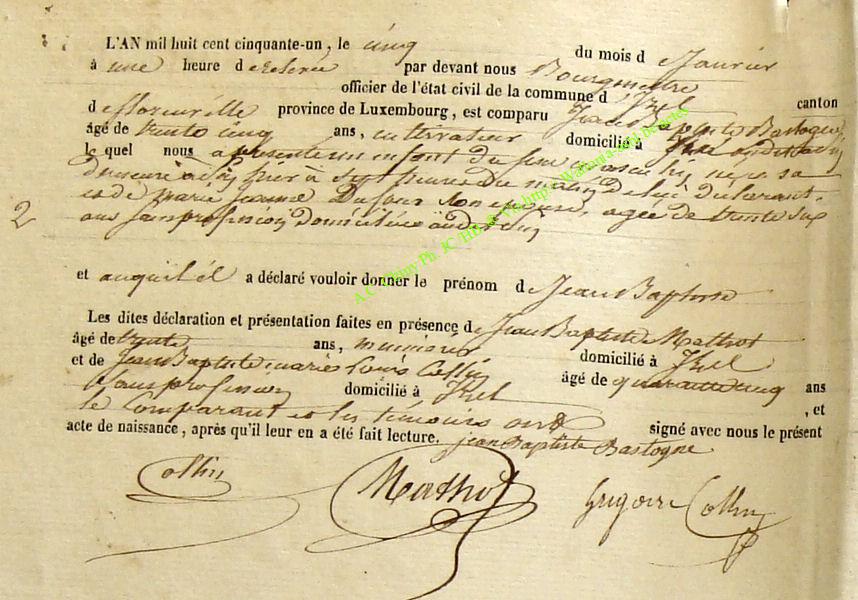 L'AN mil huit cent cinquante-un, le cinq du mois d e Janvier
à une heure d e relevée par devant nous Bourgmestre
officier de l'état civil de la commune d' Izel canton
d e florenville province de Luxembourg, est comparu Jean Baptiste Bastogne
âgé de trente cinq ans, cultivateur domicilié à Izel
le quel nous a présenté un enfant du sexe masculin né
hier à sept heures du matin de lui déclarant
et de marie jeanne Dufour son épouse, agée de trente six
ans sans profession domiciliée
2
et auquel il a déclaré vouloir donner le prénom d e Jean Baptiste
Les dites déclaration et présentation faites en présence d e Jean Baptiste Mathot
âgé de trente ans, menuisier domicilié à Izel
et de Jean Baptiste marie Louis Collin âgé de quarante cinq ans
sans profession domicilié à Izel , et
le comparant et les témoins ont signé avec nous le présent
acte de naissance, après qu'il leur en a été fait lecture. jean Baptiste Bastogne
Collin Mathot Grégoire Collin